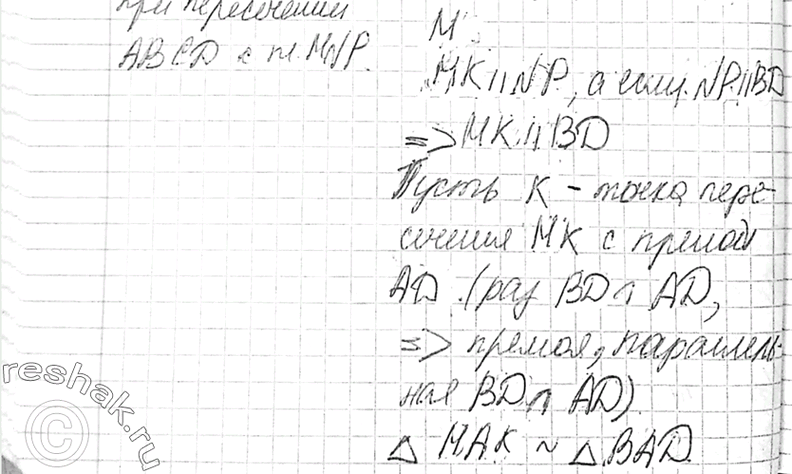 при пересечении
ABCD с пл. MNP.
M.
MK || NP, а если NP || BD
=> MK || BD
Пусть K - точка пере-
сечения MK с прямой
AD. (раз BD ∩ AD,
=> прямая, параллель-
ная BD ∩ AD)
△ MAK ~ △ BAD.
reshak.ru
©